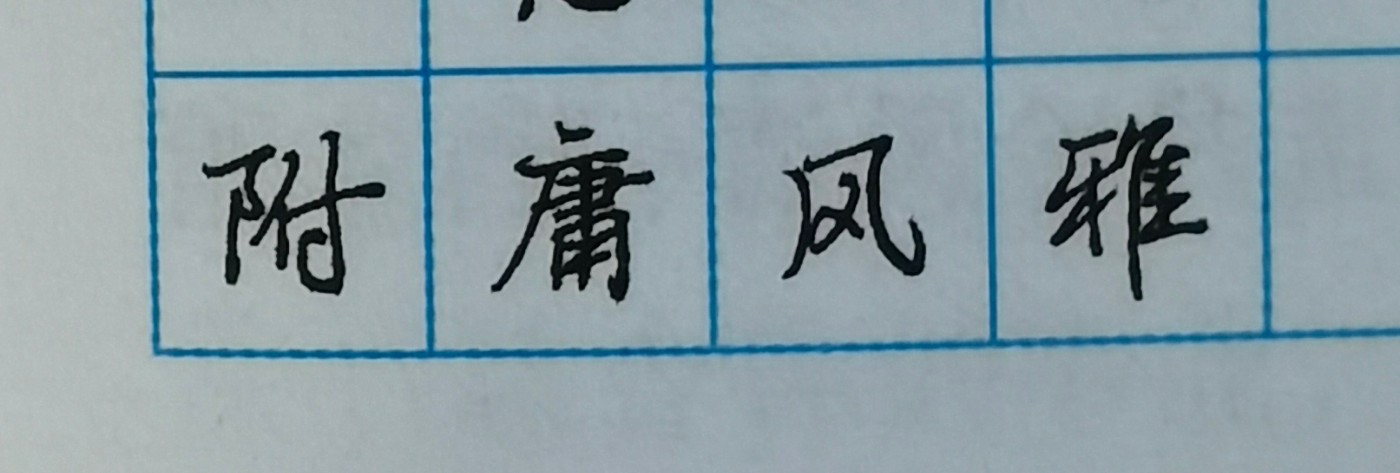 附庸风雅